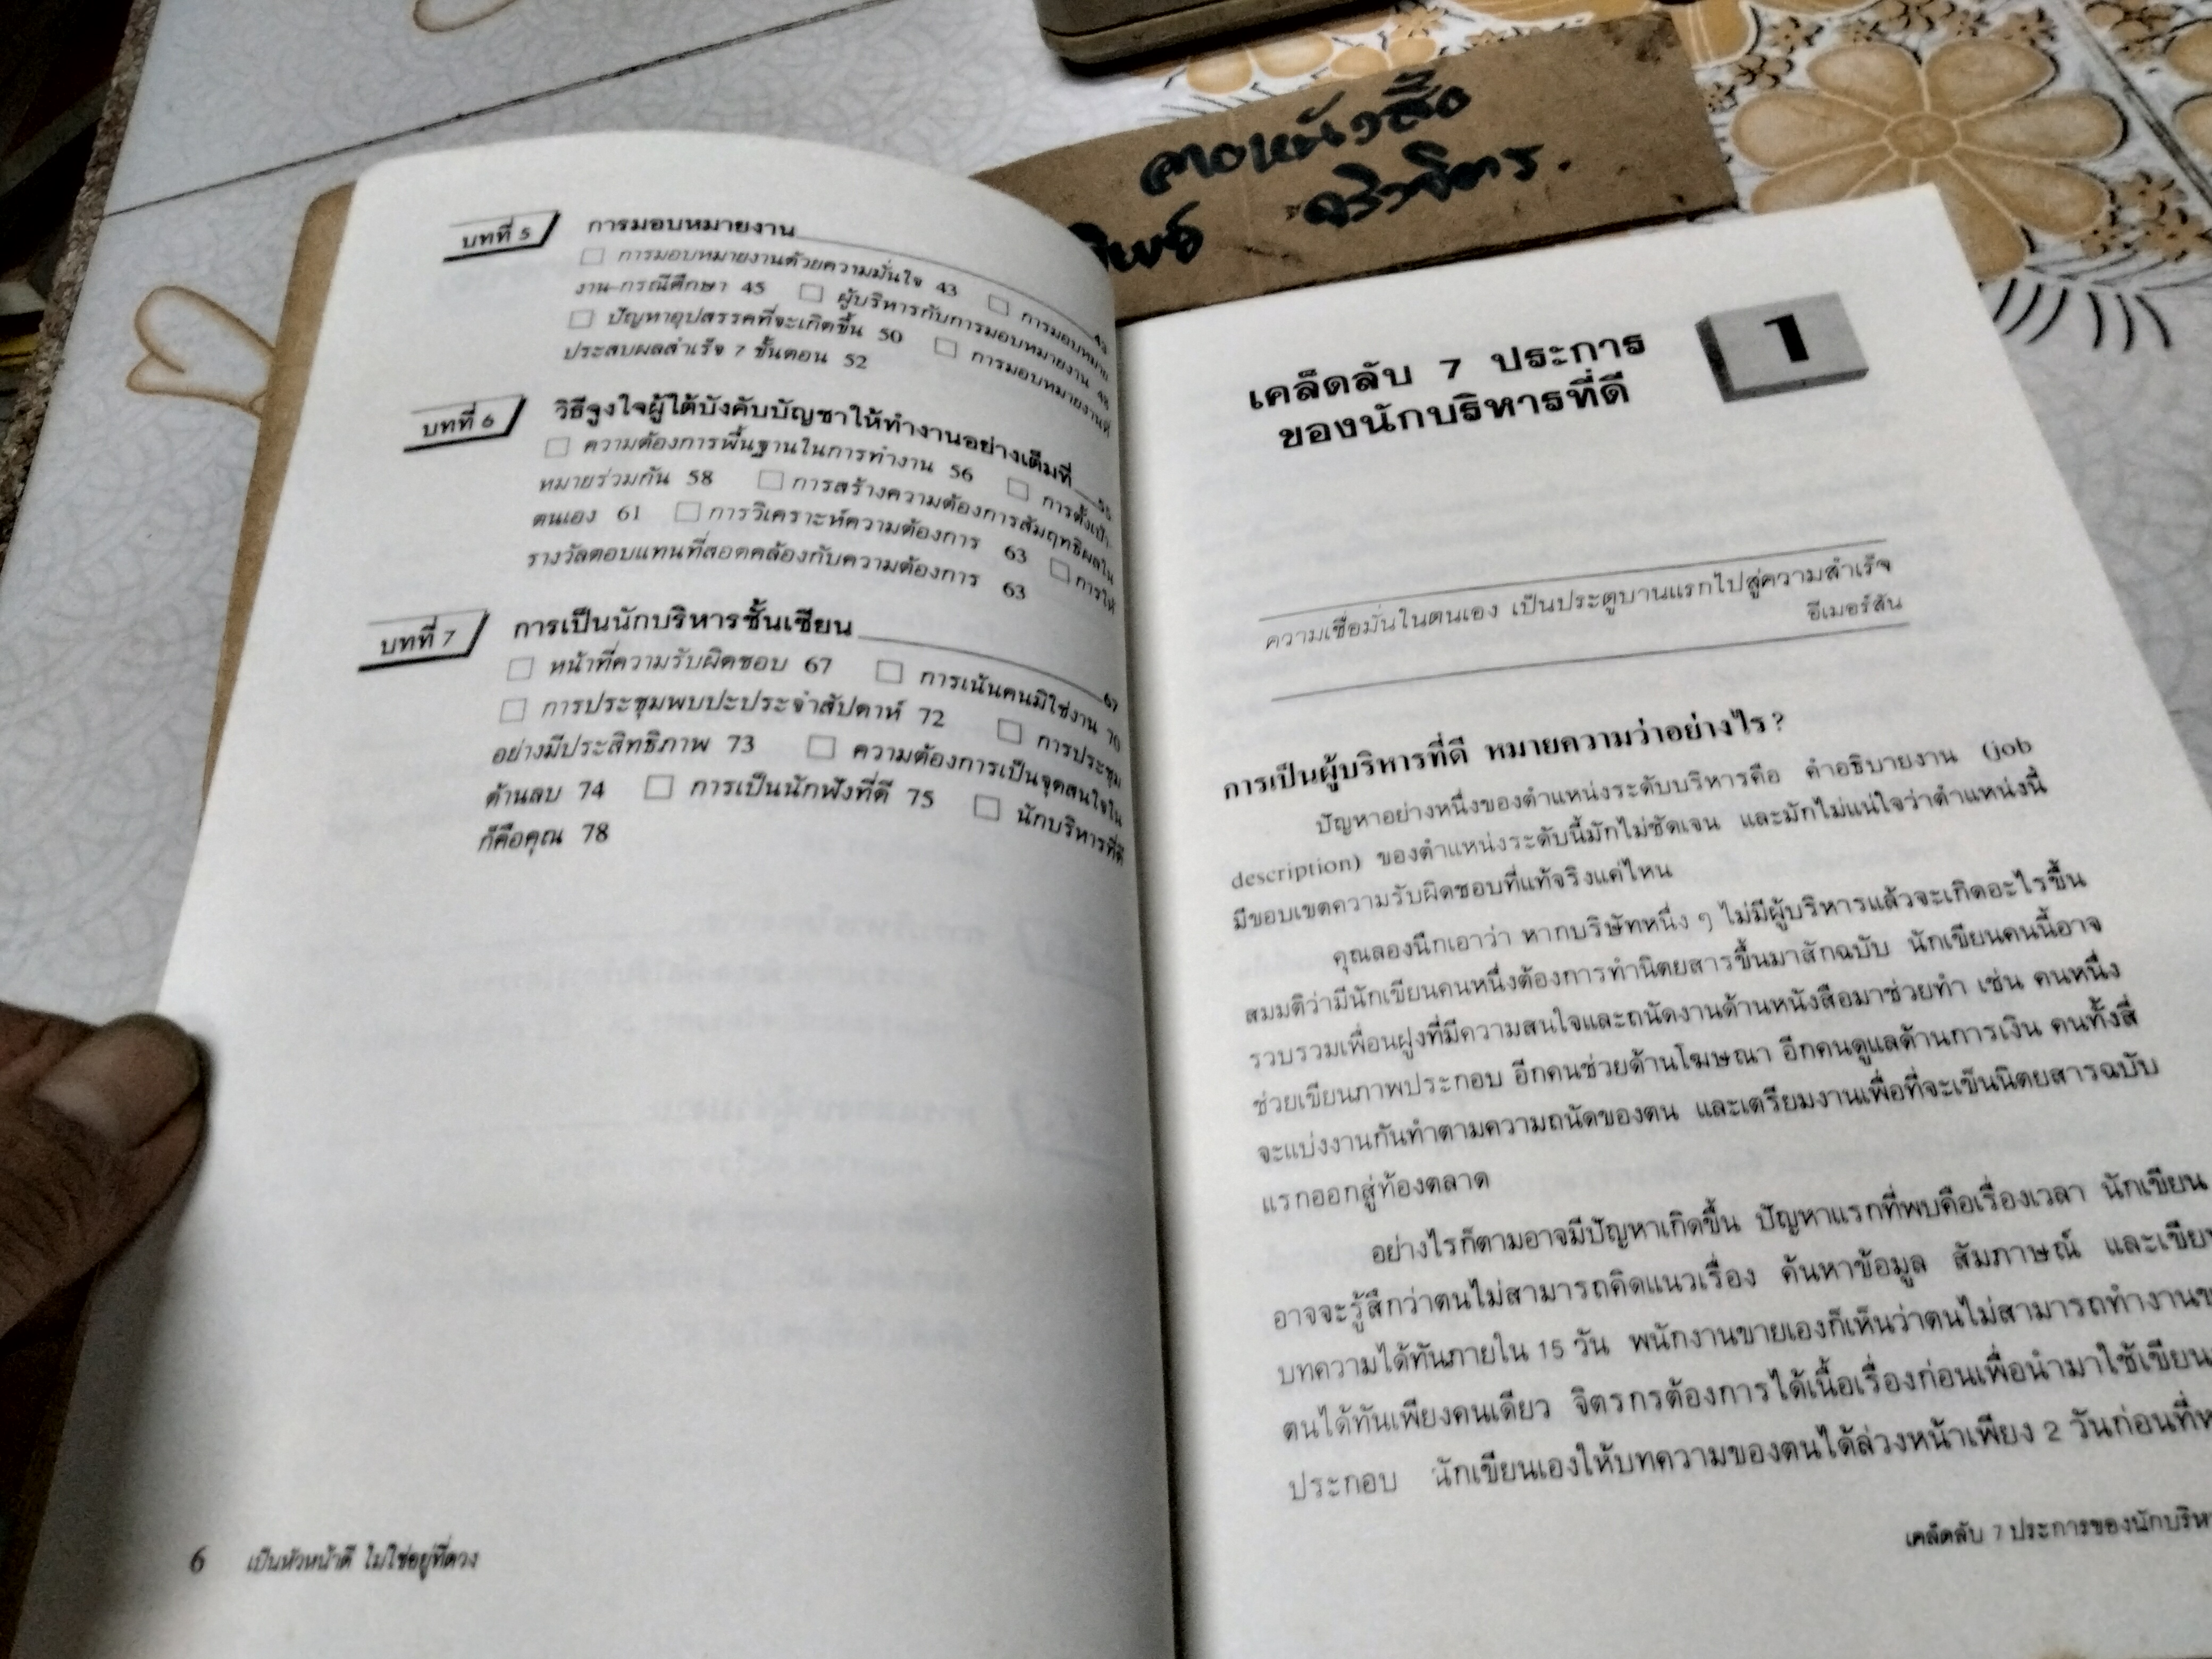 ลายหนังสือ
จริวจิตร.
บทที่ 5 การมอบหมายงาน 43
☐ การมอบหมายงานด้วยความมั่นใจ 43 ☐ การมอบหมาย
งาน-กรณีศึกษา 45 ☐ ผู้บริหารกับการมอบหมายงาน 48
☐ ปัญหาอุปสรรคที่จะเกิดขึ้น 50 ☐ การมอบหมายงานที่
ประสบผลสำเร็จ 7 ขั้นตอน 52
บทที่ 6 วิธีจูงใจผู้ใต้บังคับบัญชาให้ทำงานอย่างเต็มที่ 55
☐ ความต้องการพื้นฐานในการทำงาน 56 ☐ การตั้งเป้า-
หมายร่วมกัน 58 ☐ การสร้างความต้องการสัมฤทธิผลใน
ตนเอง 61 ☐ การวิเคราะห์ความต้องการ 63 ☐ การให้
รางวัลตอบแทนที่สอดคล้องกับความต้องการ 63
บทที่ 7 การเป็นนักบริหารชั้นเซียน 67
☐ หน้าที่ความรับผิดชอบ 67 ☐ การเน้นคนมิใช่งาน 70
☐ การประชุมพบปะประจำสัปดาห์ 72 ☐ การประชุม
อย่างมีประสิทธิภาพ 73 ☐ ความต้องการเป็นจุดสนใจใน
ด้านลบ 74 ☐ การเป็นนักฟังที่ดี 75 ☐ นักบริหารที่ดี
ก็คือคุณ 78
6 เป็นหัวหน้าดี ไม่ใช่อยู่ที่ดวง
1
เคล็ดลับ 7 ประการ
ของนักบริหารที่ดี
ความเชื่อมั่นในตนเอง เป็นประตูบานแรกไปสู่ความสำเร็จ
อีเมอร์สัน
การเป็นผู้บริหารที่ดี หมายความว่าอย่างไร?
ปัญหาอย่างหนึ่งของตำแหน่งระดับบริหารคือ คำอธิบายงาน (job
description) ของตำแหน่งระดับนี้มักไม่ชัดเจน และมักไม่แน่ใจว่าตำแหน่งนี้
มีขอบเขตความรับผิดชอบที่แท้จริงแค่ไหน
คุณลองนึกเอาว่า หากบริษัทหนึ่ง ๆ ไม่มีผู้บริหารแล้วจะเกิดอะไรขึ้น
สมมติว่ามีนักเขียนคนหนึ่งต้องการทำนิตยสารขึ้นมาสักฉบับ นักเขียนคนนี้อาจ
รวบรวมเพื่อนฝูงที่มีความสนใจและถนัดงานด้านหนังสือมาช่วยทำ เช่น คนหนึ่ง
ช่วยเขียนภาพประกอบ อีกคนช่วยด้านโฆษณา อีกคนดูแลด้านการเงิน คนทั้งสี่
จะแบ่งงานกันทำตามความถนัดของตน และเตรียมงานเพื่อที่จะเข็นนิตยสารฉบับ
แรกออกสู่ท้องตลาด
อย่างไรก็ตามอาจมีปัญหาเกิดขึ้น ปัญหาแรกที่พบคือเรื่องเวลา นักเขียน
อาจจะรู้สึกว่าตนไม่สามารถคิดแนวเรื่อง ค้นหาข้อมูล สัมภาษณ์ และเขียน
บทความได้ทันภายใน 15 วัน พนักงานขายเองก็เห็นว่าตนไม่สามารถทำงานข
ตนได้ทันเพียงคนเดียว จิตรกรต้องการได้เนื้อเรื่องก่อนเพื่อนำมาใช้เขียน
ประกอบ นักเขียนเองให้บทความของตนได้ล่วงหน้าเพียง 2 วันก่อนที่ห
เคล็ดลับ 7 ประการของนักบริห